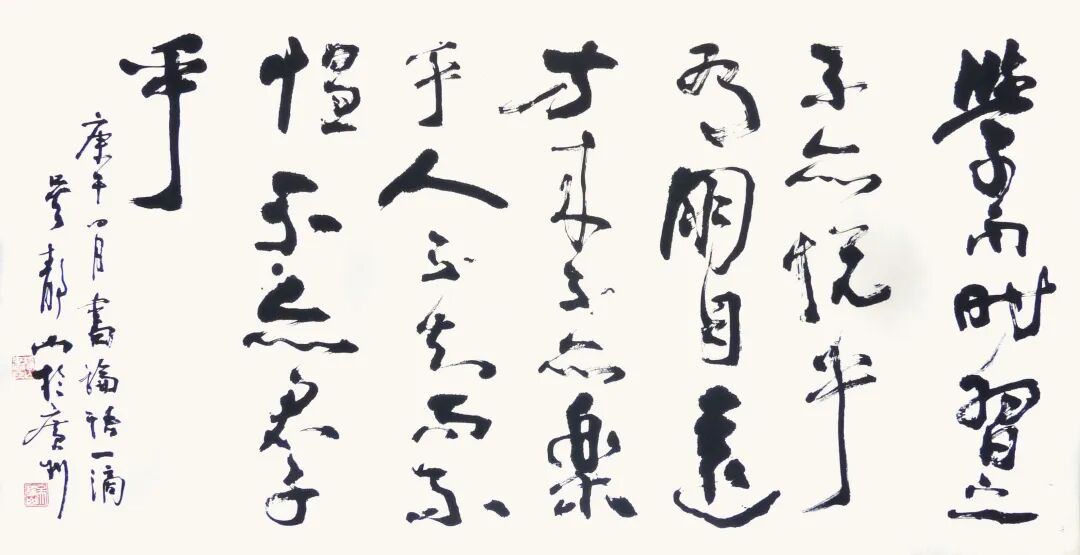 學而時習之
不亦悅乎
有朋自遠
方來不亦樂
乎人不知而不
愠不亦君子
乎
庚午四月書論語一滴
吳靜山於廣州